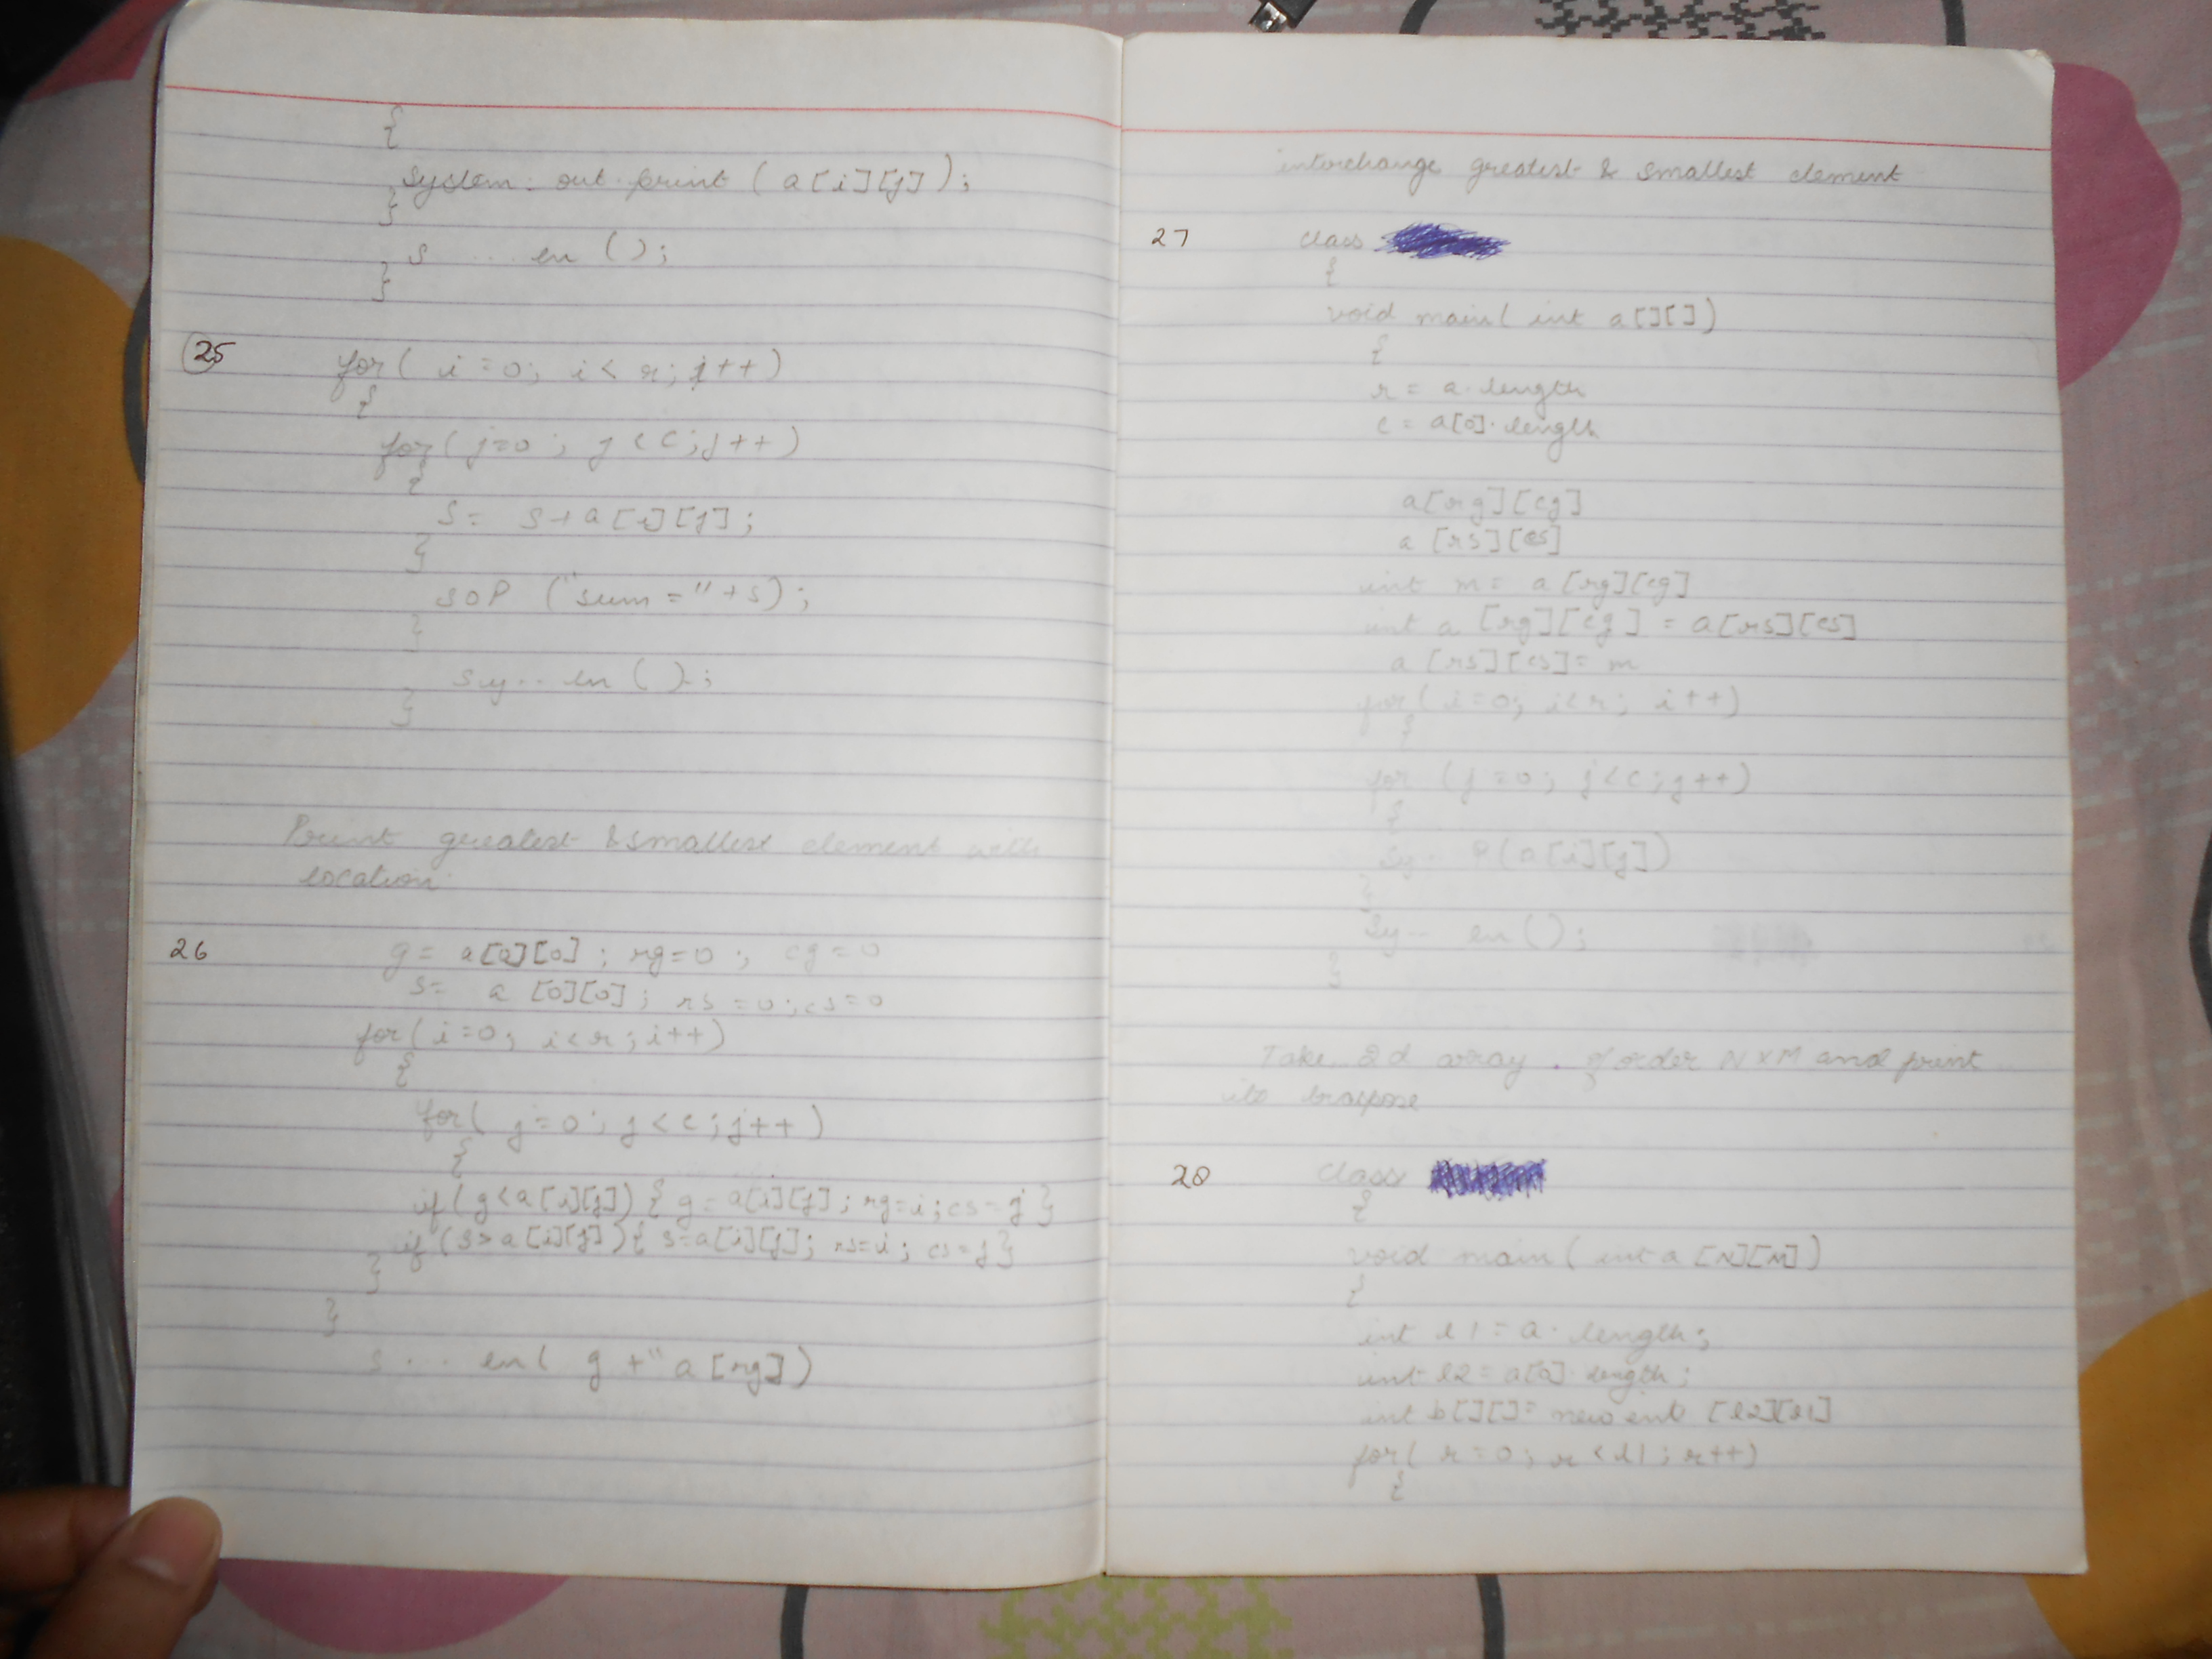 {
System. out. print ( a [i] [j] );
}
s ... ln ( );
}
25
for ( i = 0; i < r; i++ )
{
for ( j=0 ; j < c ; j++ )
{
s = s+a [i] [j] ;
}
SOP ("sum =" + s) ;
}
Sy.. ln ( ) ;
}
Print greatest & smallest element with
location.
26
g = a[0][0] ; rg=0 ; cg = 0
s= a [0][0] ; rs = 0 ; cs = 0
for ( i = 0; i < r ; i++ )
{
for ( j = 0 ; j < c ; j++ )
{
if ( g < a [i][j] ) { g = a[i][j] ; rg=i ; cs = j }
if ( s > a [i][j] ) { s=a[i][j] ; rs=i ; cs=j }
}
}
s ... ln ( g +" a [rg] )
interchange greatest & smallest element
27 class
{
void main ( int a [ ] [ ] )
{
r = a. length
c = a[0]. length
a [rg] [cg]
a [rs] [cs]
int m = a [rg] [cg]
int a [rg] [cg] = a [rs] [cs]
a [rs] [cs] = m
for ( i = 0; i < r ; i++ )
{
for ( j = 0; j < c ; j++ )
{
Sy.. P ( a [i] [j] )
}
Sy.. ln ( ) ;
}
Take 2d array . of order N x M and print
its traspose
28 class
{
void main ( int a [N] [M] )
{
int l1 = a. length ;
int l2 = a[0]. length ;
int b[ ][ ] = new int [l2][l1]
for ( r = 0 ; r < l1 ; r++ )
{